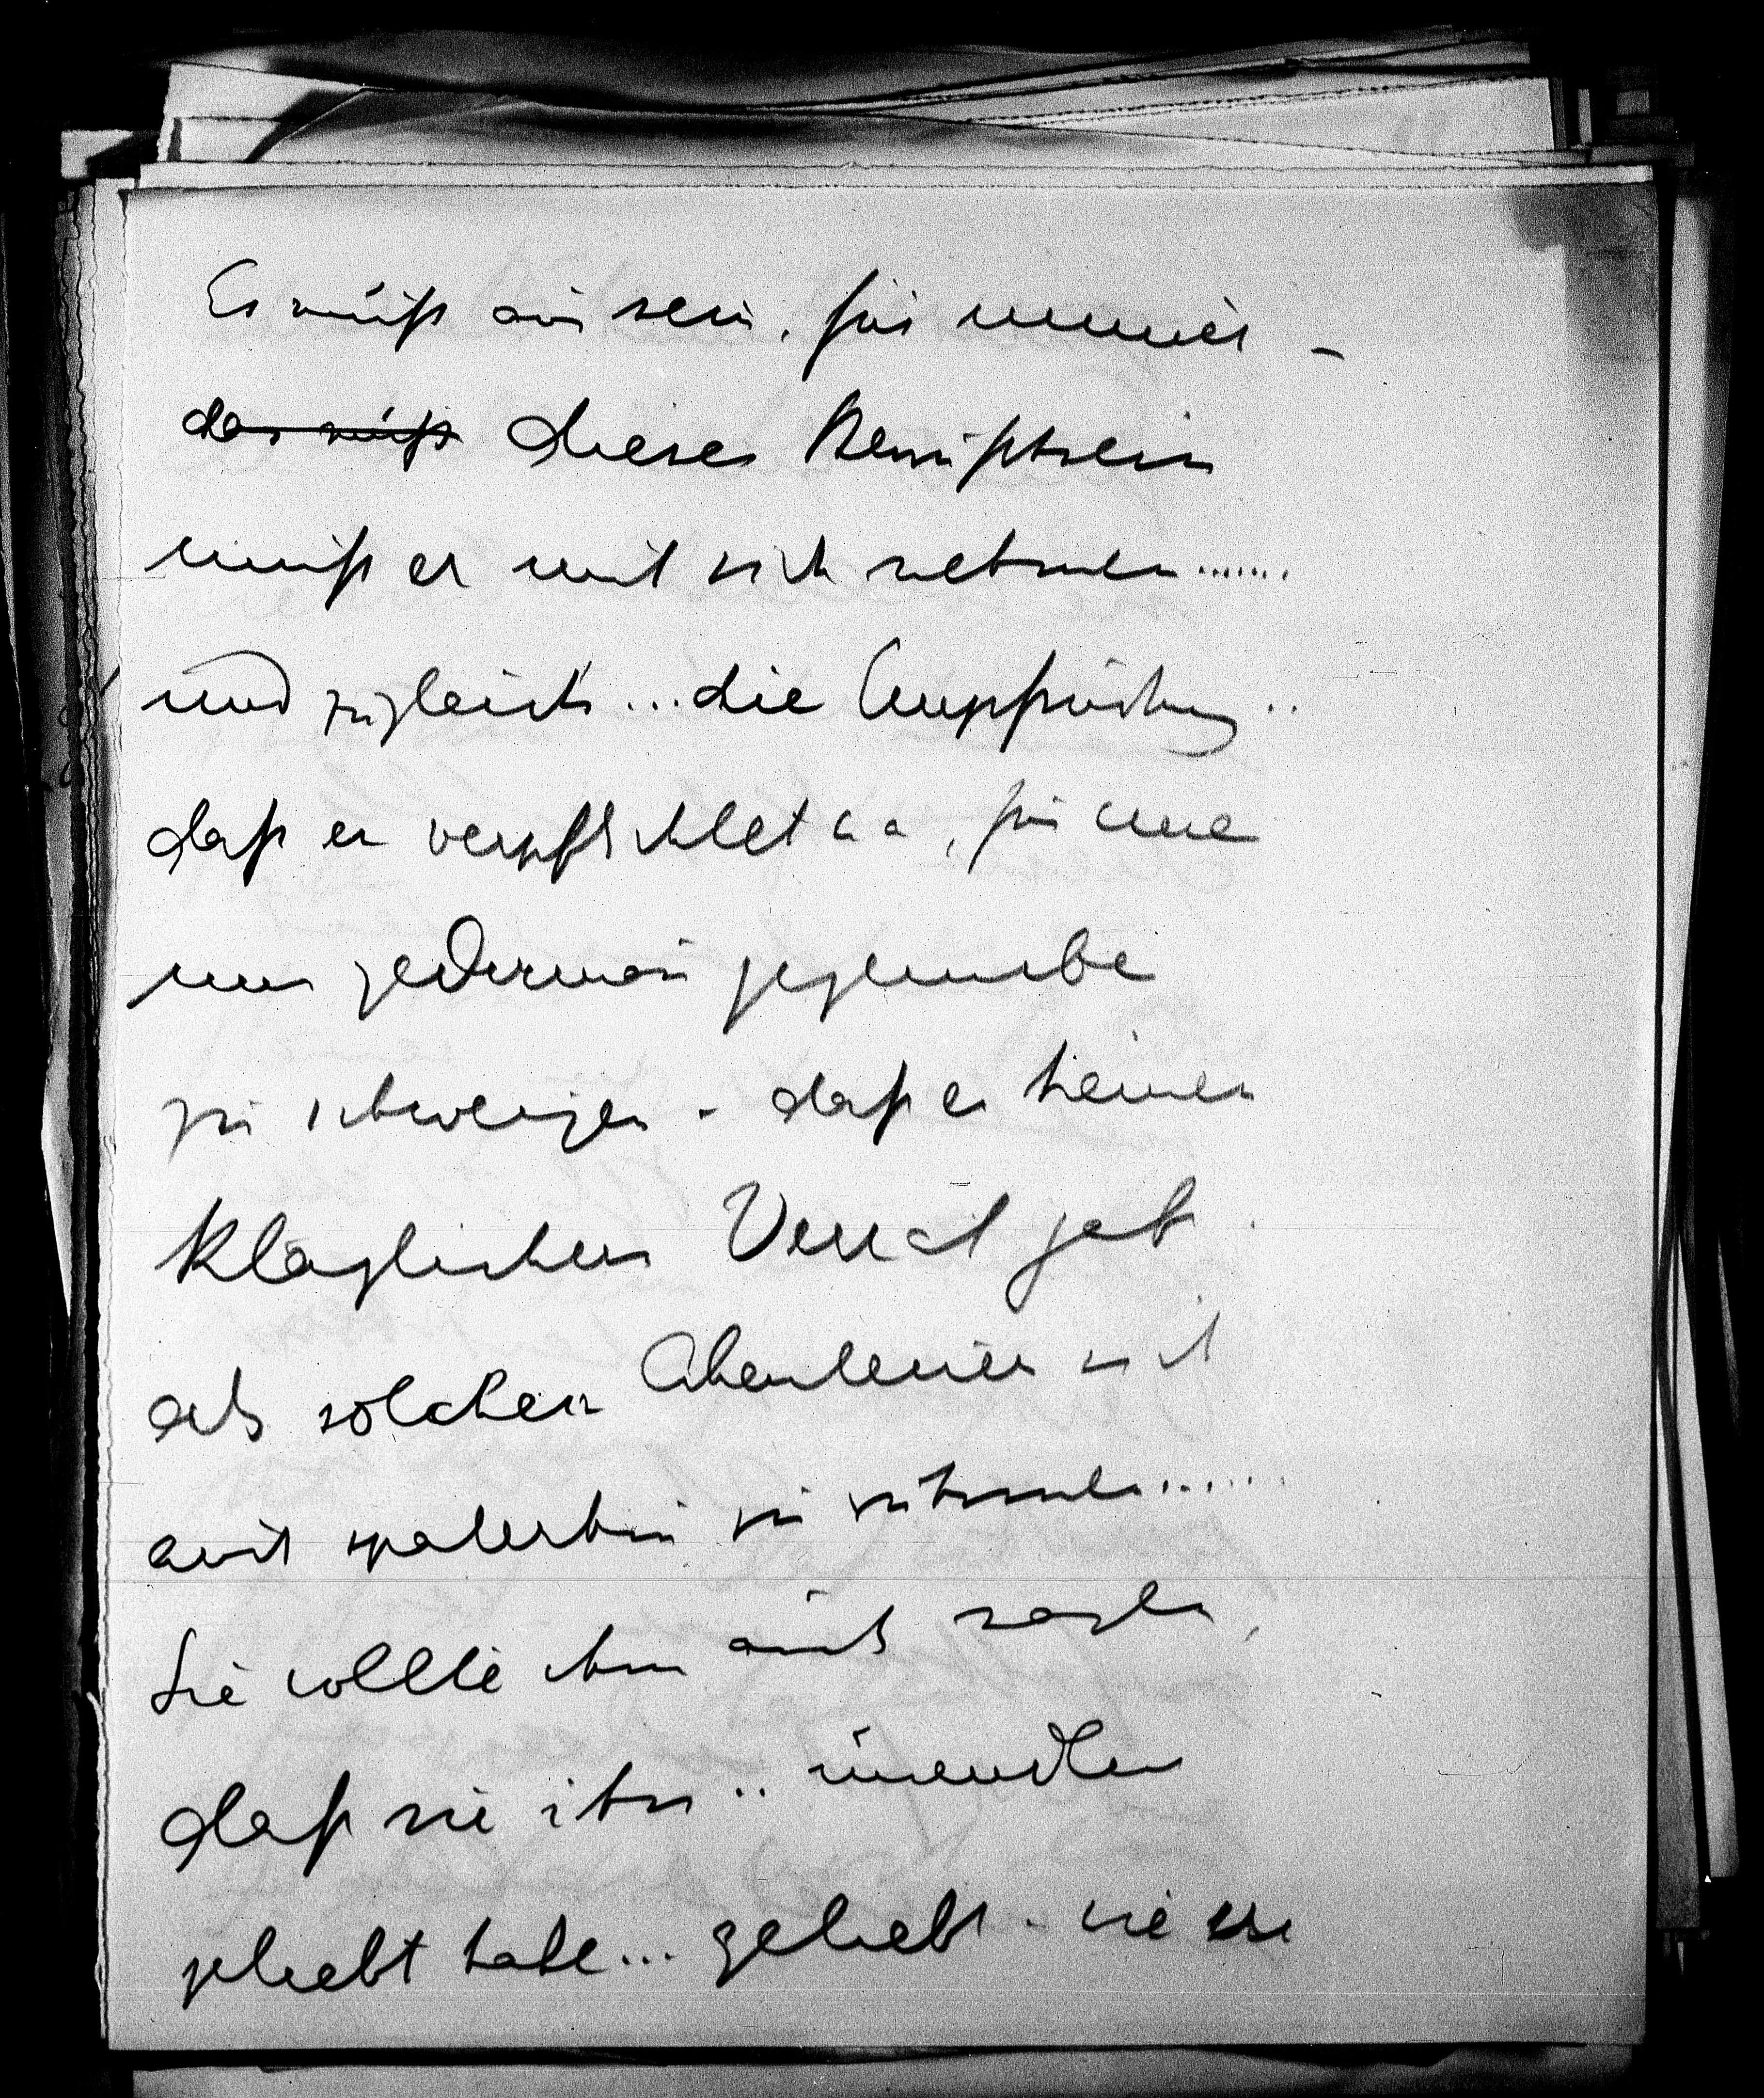 Es muß aus sein, für immer –
das muß Dieses Bewußtsein
muß er mit sich nehmen.......
und zugleich... die Empfindung..
daß er verpflichtet sei, für immer
jederman gegenüber
zu schweigen – daß es keinen
kläglichern Verrat gebe
als solcher Abenteuer sich
späterhin zu rühmen......
Sie wollte ihm auch sagen,
daß sie ihn.. unendlich
geliebt habe... geliebt – wie